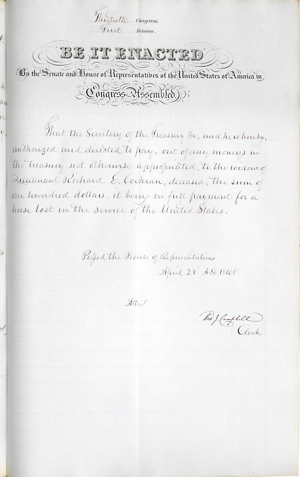 Thirtieth Congress
First Session.
BE IT ENACTED
By the Senate and House of Representatives of the United States of America in
Congress Assembled
That the Secretary of the Treasury be, and he is hereby,
authorized and directed to pay, out of any moneys in
the treasury not otherwise appropriated, to the widow of
Lieutenant Richard E. Cochran, deceased, the sum of
one hundred dollars, it being in full payment for a
horse lost in the service of the United States.
Passed the House of Representatives
April 28 AD 1848
Attest
Tho J Campbell
Clerk